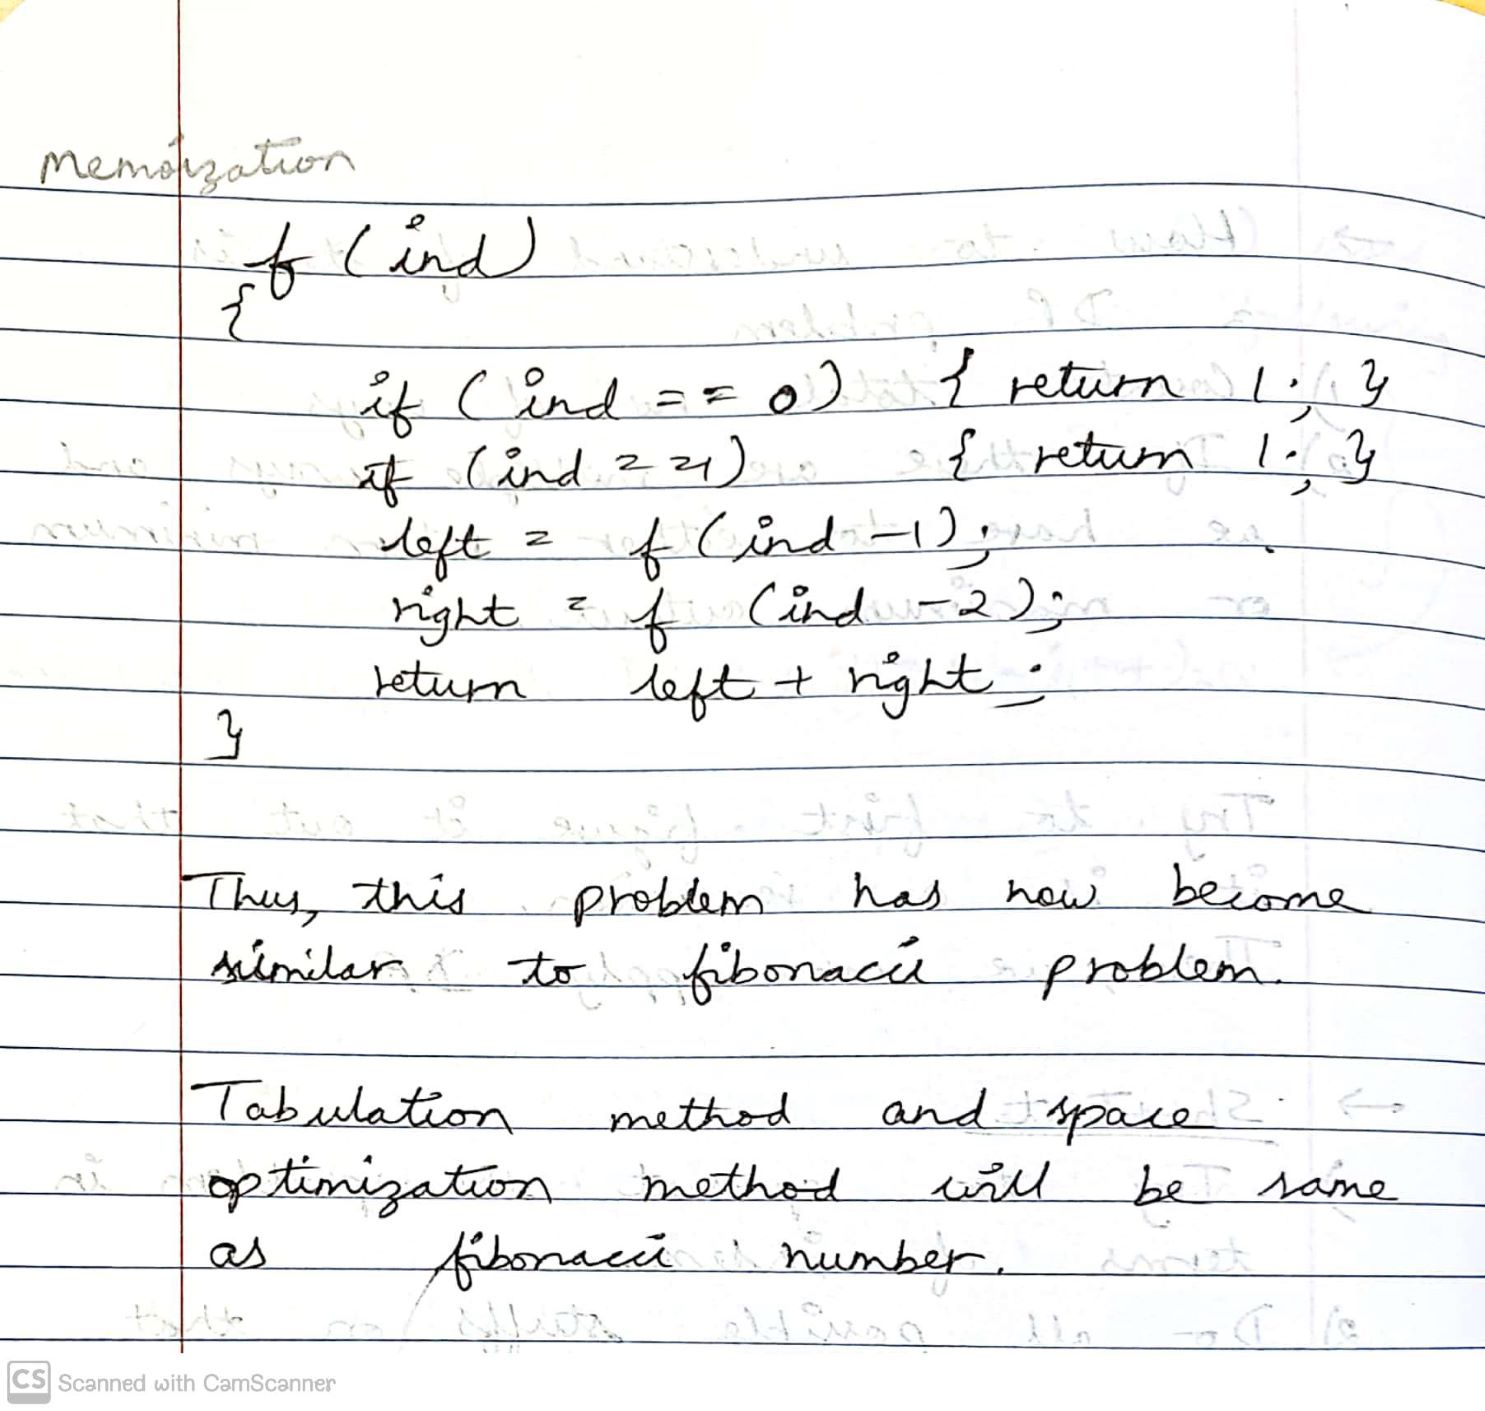 Memoization
f (ind)
{
if (ind == 0) { return 1; }
if (ind == 1) { return 1; }
left = f (ind -1);
right = f (ind -2);
return left + right;
}
Thus, this problem has now become
similar to fibonacci problem.
Tabulation method and space
optimization method will be same
as fibonacci number.
CS Scanned with CamScanner